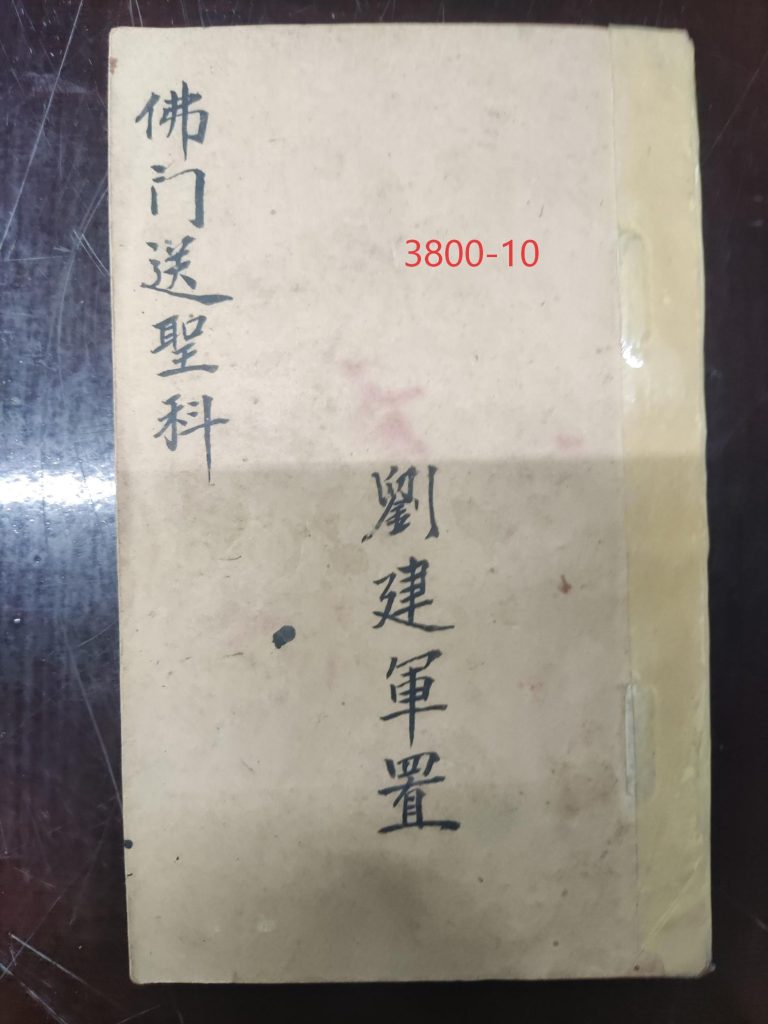 佛门送聖科
3800-10
劉建軍置